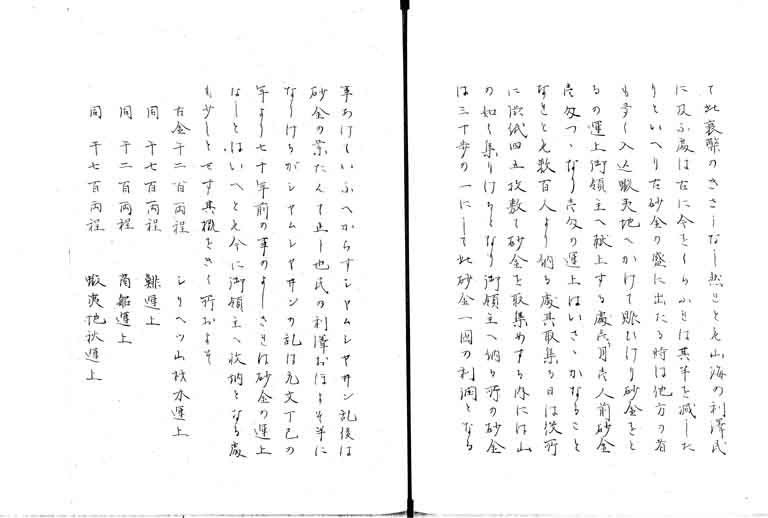 て此衰弊のきさしなし然とも山海の利澤民
に及ふ處は古に今をくらふれは其半を減した
りといへり古砂金の盛に出たる時は他方の者
も多く入込蝦夷地へかけて賑ひけり砂金をと
るの運上御領主へ献上する處壱ヶ月壱人前砂金
壱匁つゝなり壱匁の運上はいさゝかなること
なれとも数百人より納る處其取集る日は役所
に渋紙四五枚敷て砂金を取集めする内には山
の如く集りけるとなり御領主へ納り所の砂金
は三十歩の一にして此砂金一国の利潤となる
事あけていふへからすシヤムシヤヰン乱後は
砂金の業たへて止し也民の利澤おほよそ半に
なりけるがシヤムシヤヰンの乱は元文丁巳の
年より七十年前の事のよしされは砂金の運上
なしとはいへとも今に御領主へ収納となる處
も少しとせす其概をきく所およそ
古金千二百両程 シリヘツ山秋分運上
同 千七百両程 鯡運上
同 千二百両程 商船運上
同 千七百両程 蝦夷地秋運上